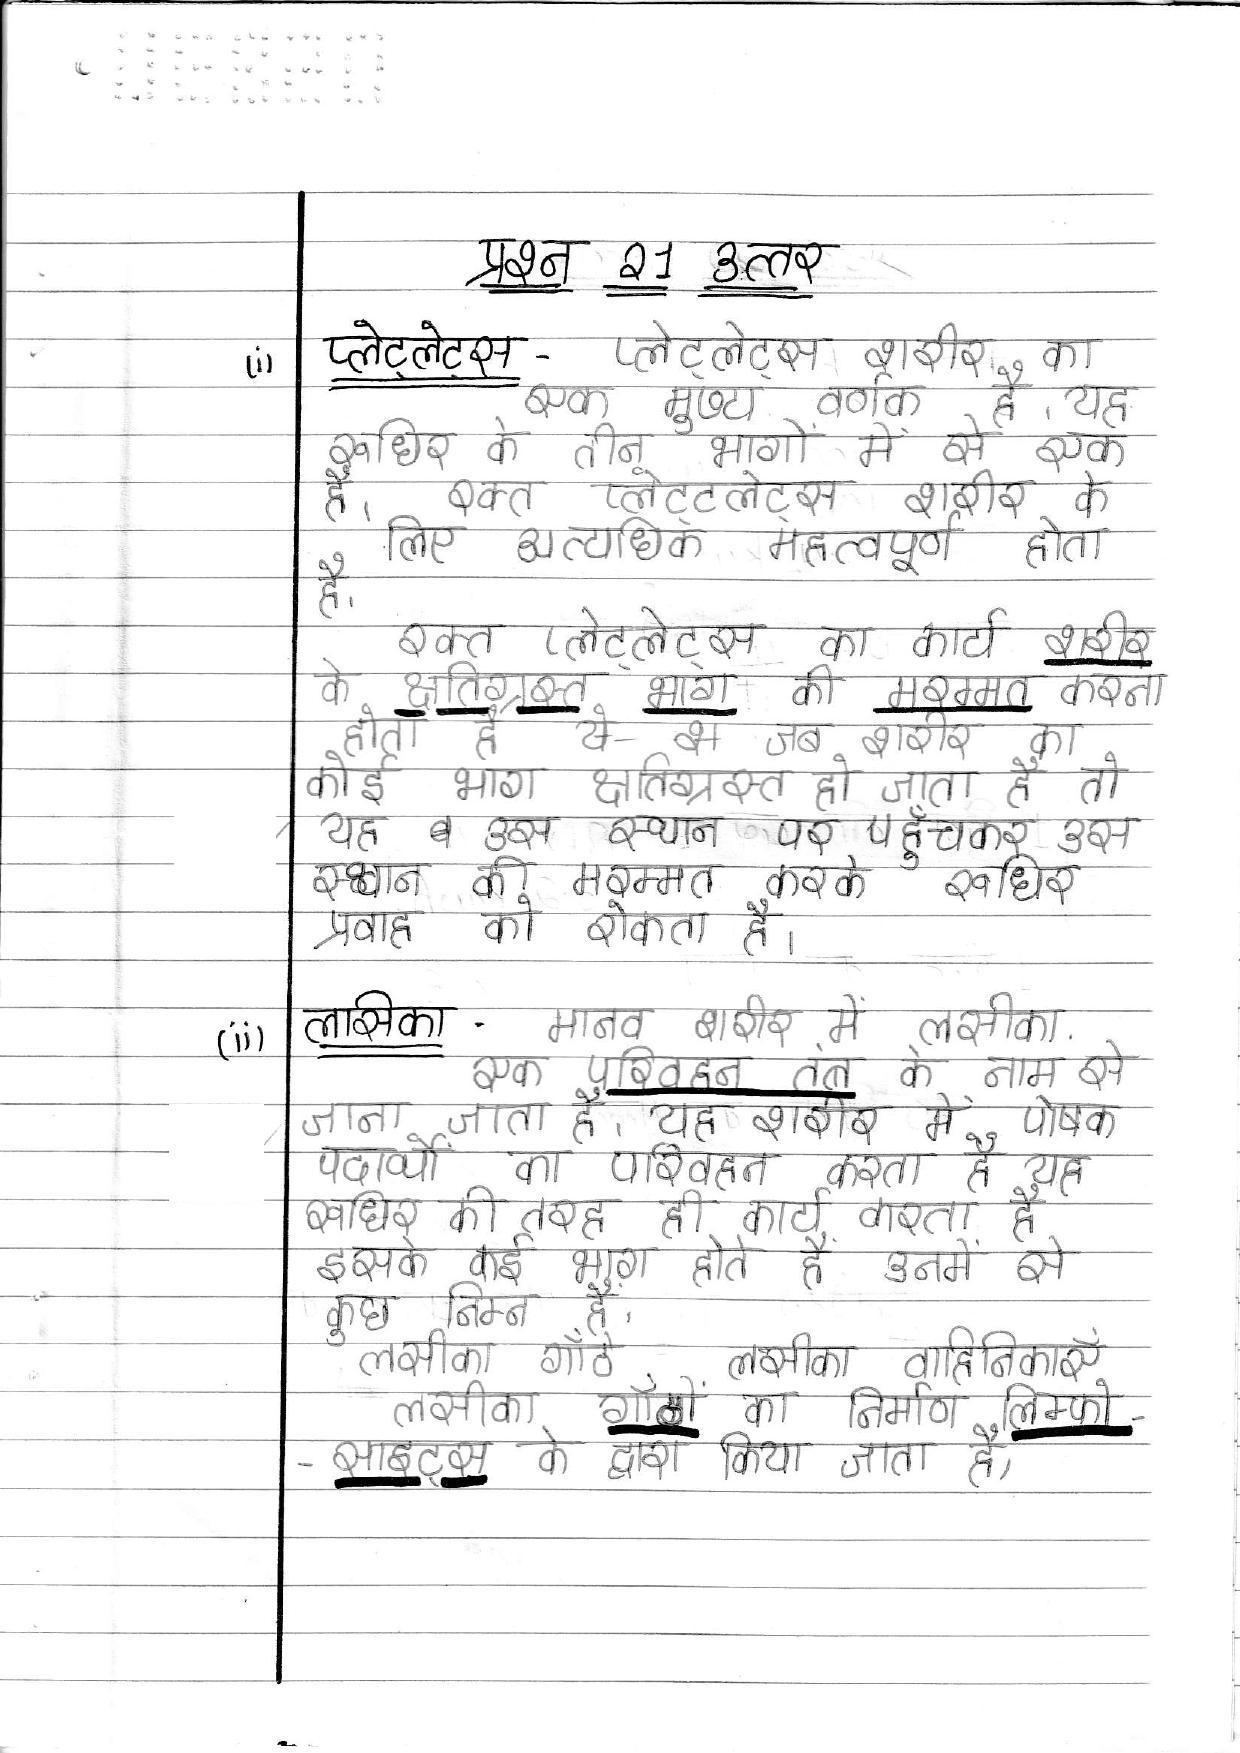 प्रश्न 21 उत्तर
(i) प्लेट्लेट्स - प्लेट्लेट्स शरीर का
एक मुख्य वर्णक है। यह
रूधिर के तीनू भागों में से एक
है। रक्त प्लेट्टलेट्स शरीर के
लिए अत्यधिक महत्वपूर्ण होता
है।
रक्त प्लेट्लेट्स का कार्य शरीर
के क्षतिग्रस्त भाग की मरम्मत करना
होता है ये - जब शरीर का
कोई भाग क्षतिग्रस्त हो जाता है तो
यह उस स्थान पर पहुँचकर उस
स्थान की मरम्मत करके रूधिर
प्रवाह को रोकता है।
(ii) लासिका - मानव शरीर में लसीका.
एक परिवहन तंत्र के नाम से
जाना जाता है। यह शरीर में पोषक
पदार्थों का परिवहन करता है यह
रूधिर की तरह ही कार्य करता है
इसके कई भाग होते हैं उनमें से
कुछ निम्न हैं।
लसीका गाँठे, लसीका वाहिनिकाएँ
लसीका गाँठों का निर्माण लिम्फो-
- साइट्स के द्वारा किया जाता है,